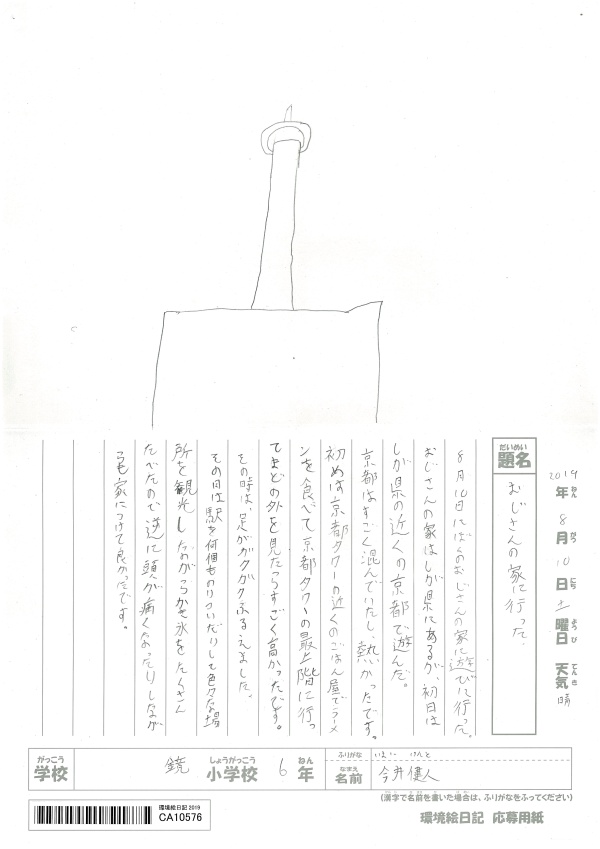 2019年8月10日土曜日 天気晴
ねん がつ にち ようび てんき
だいめい
題名
おじさんの家に行った。
8月10日にぼくのおじさんの家に遊びに行った。
おじさんの家はしが県にあるが、初日は
しが県の近くの京都で遊んだ。
京都はすごく混んでいたし、熱かったです。
初めは京都タワーの近くのごはん屋でラーメ
ンを食べて京都タワーの最上階に行っ
てまどの外を見たらすごく高かったです。
その時は、足がガクガクふるえました。
その日は駅を何個ものりついだりして色々な場
所を観光しながらかき氷をたくさん
たべたので逆に頭が痛くなったりしなが
らも家につけて良かったです。
がっこう
学校
鏡
しょうがっこう
小学校
6
ねん
年
ふりがな
いまい けんと
なまえ
名前
今井健人
(漢字で名前を書いた場合は、ふりがなをふってください)
環境絵日記 2019
CA10576
環境絵日記 応募用紙